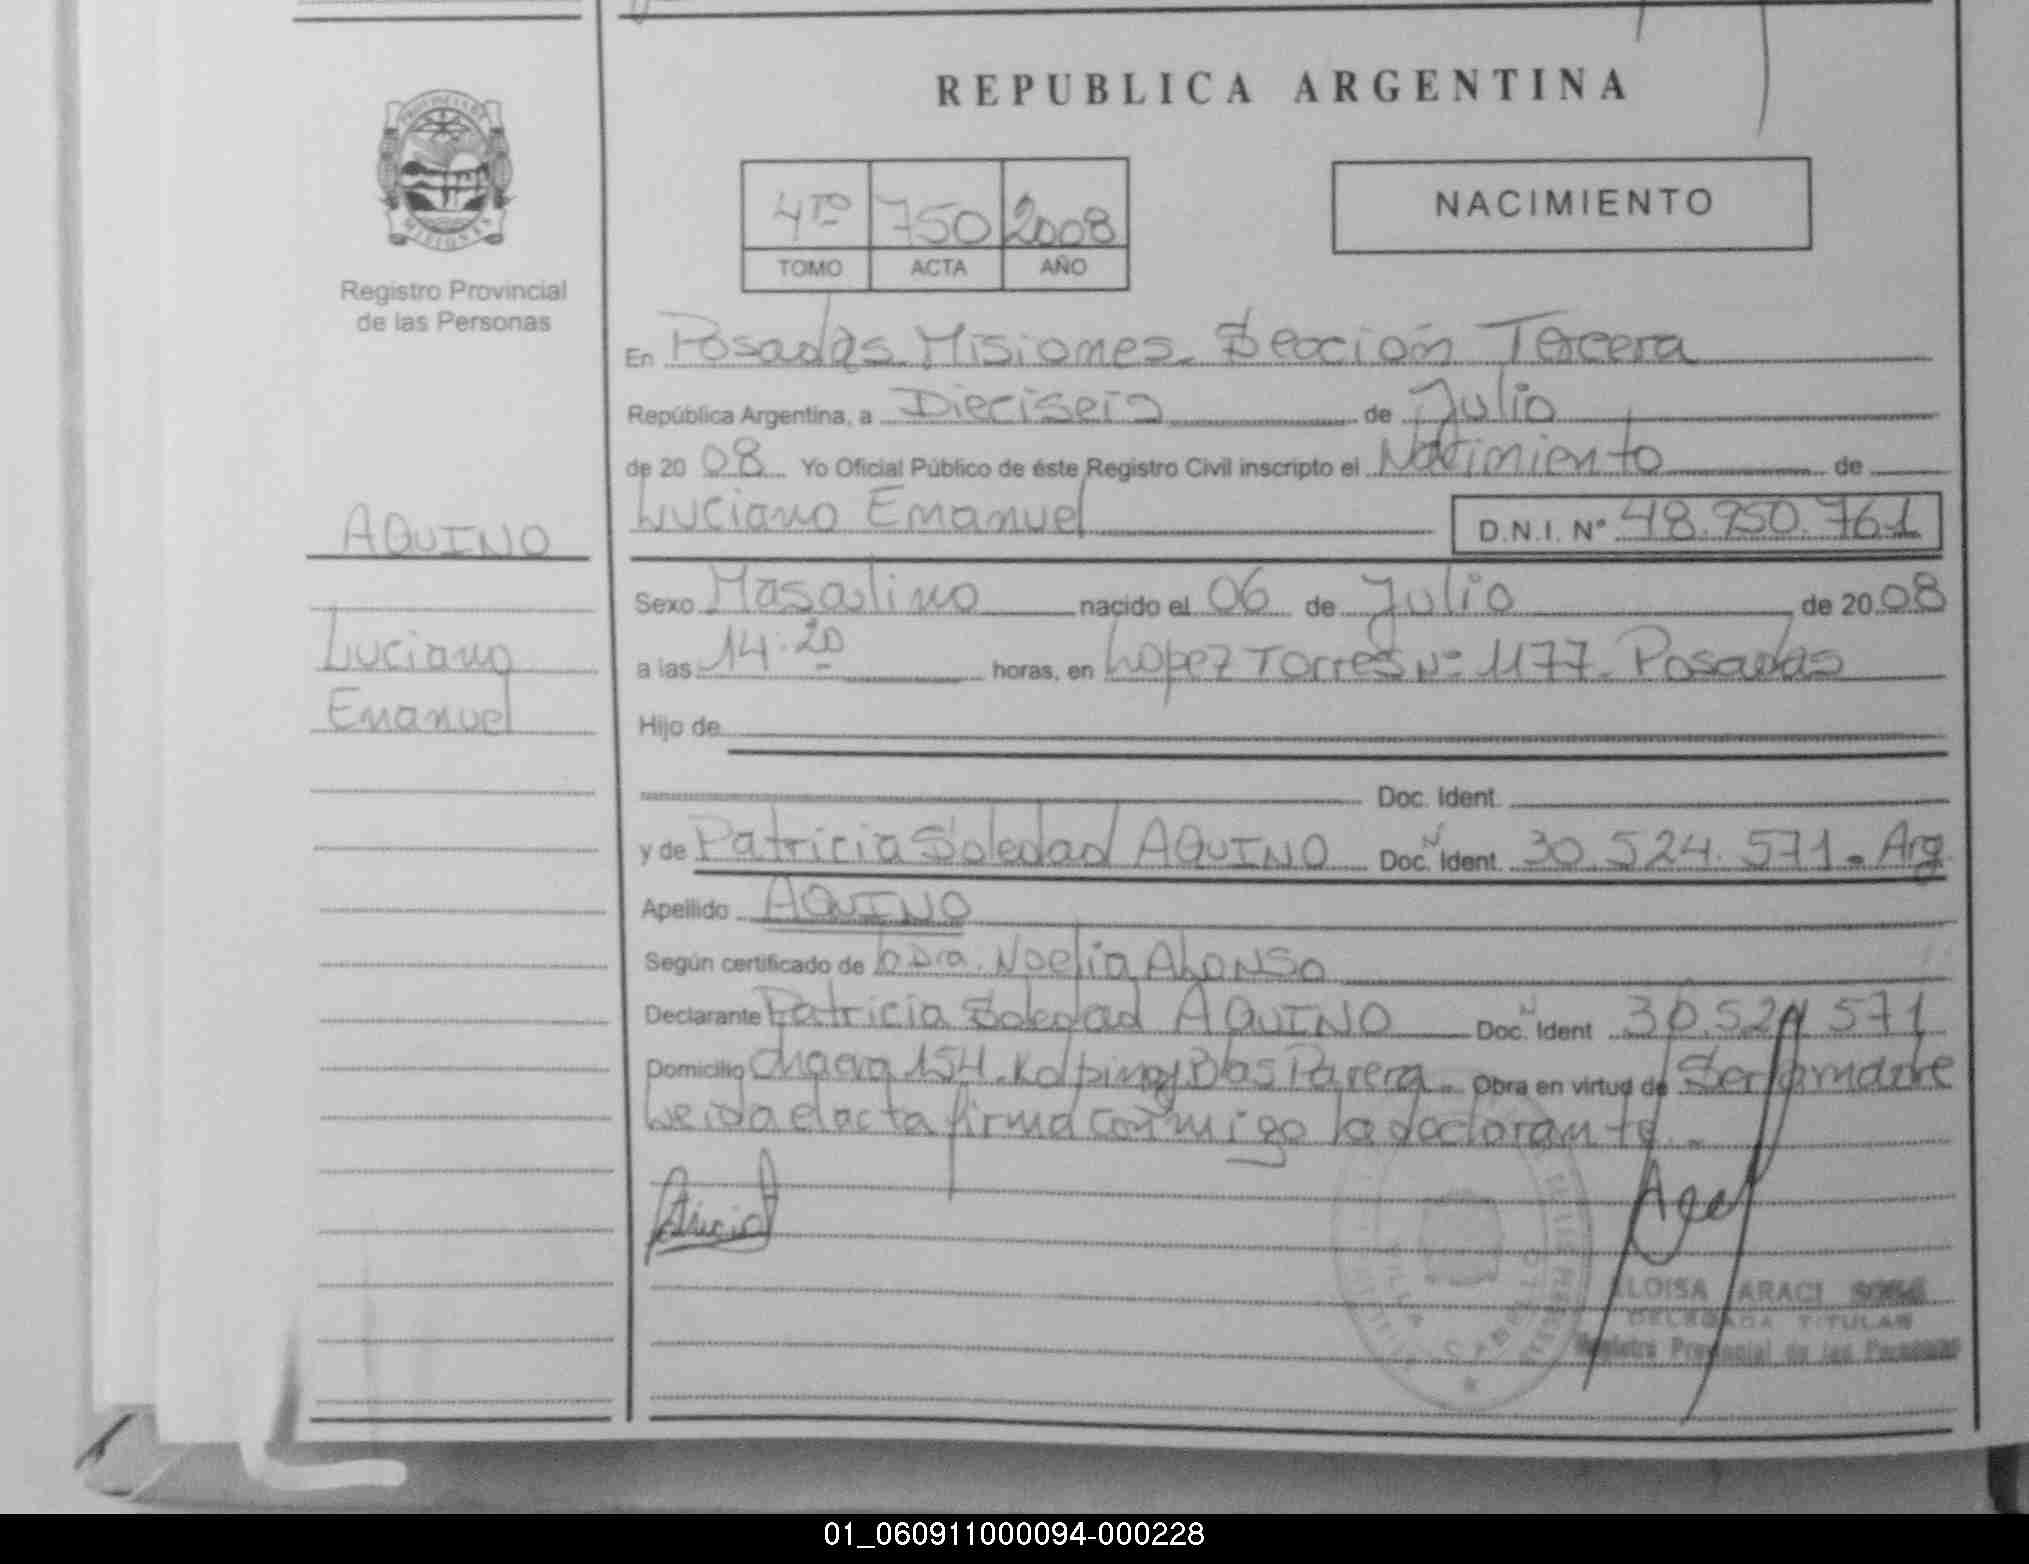 REPUBLICA ARGENTINA
PROVINCIA DE
MISIONES
Registro Provincial
de las Personas
4TO 750 2008
TOMO ACTA AÑO
NACIMIENTO
En Posadas Misiones Sección Tercera
República Argentina, a Dieciseis de Julio
de 2008 Yo Oficial Público de éste Registro Civil inscripto el Nacimiento de
AQUINO
Luciano Emanuel D.N.I. Nº 48.950.761
Sexo Masculino nacido el 06 de Julio de 2008
Luciano
Emanuel
a las 14:20 horas, en Lopez Torres Nº 1177. Posadas
Hijo de
Doc. Ident.
y de Patricia Soledad AQUINO Doc. Ident. 30.524.571. Arg
Apellido AQUINO
Según certificado de la Dra. Noelia Alonso
Declarante Patricia Soledad AQUINO Doc. Ident 30.524.571
Domicilio Chacra 154. Kolping y Blas Parera. Obra en virtud de Ser la madre
Leida el acta firma conmigo la declarante.
ARACI
DELEGADA TITULAR
Registro Provincial de las Personas
01_060911000094-000228